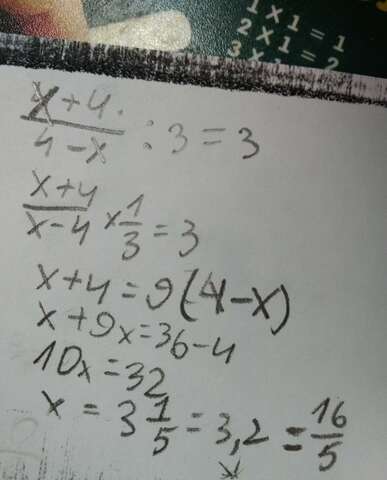 1 x 1 = 1
2 x 1 = 2
x+4/4-x : 3 = 3
x+4/x-4 x 1/3 = 3
x+4=9(4-x)
x+9x=36-4
10x=32
x = 3 1/5 = 3,2 = 16/5